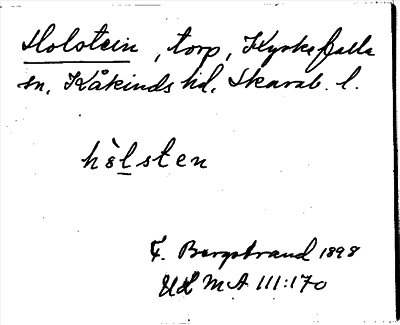 Holstein, torp, Kyrkefalla
sn, Kåkinds hd, Skarab. l.
hòlsten
F. Bergstrand 1898
Ud M A III:170